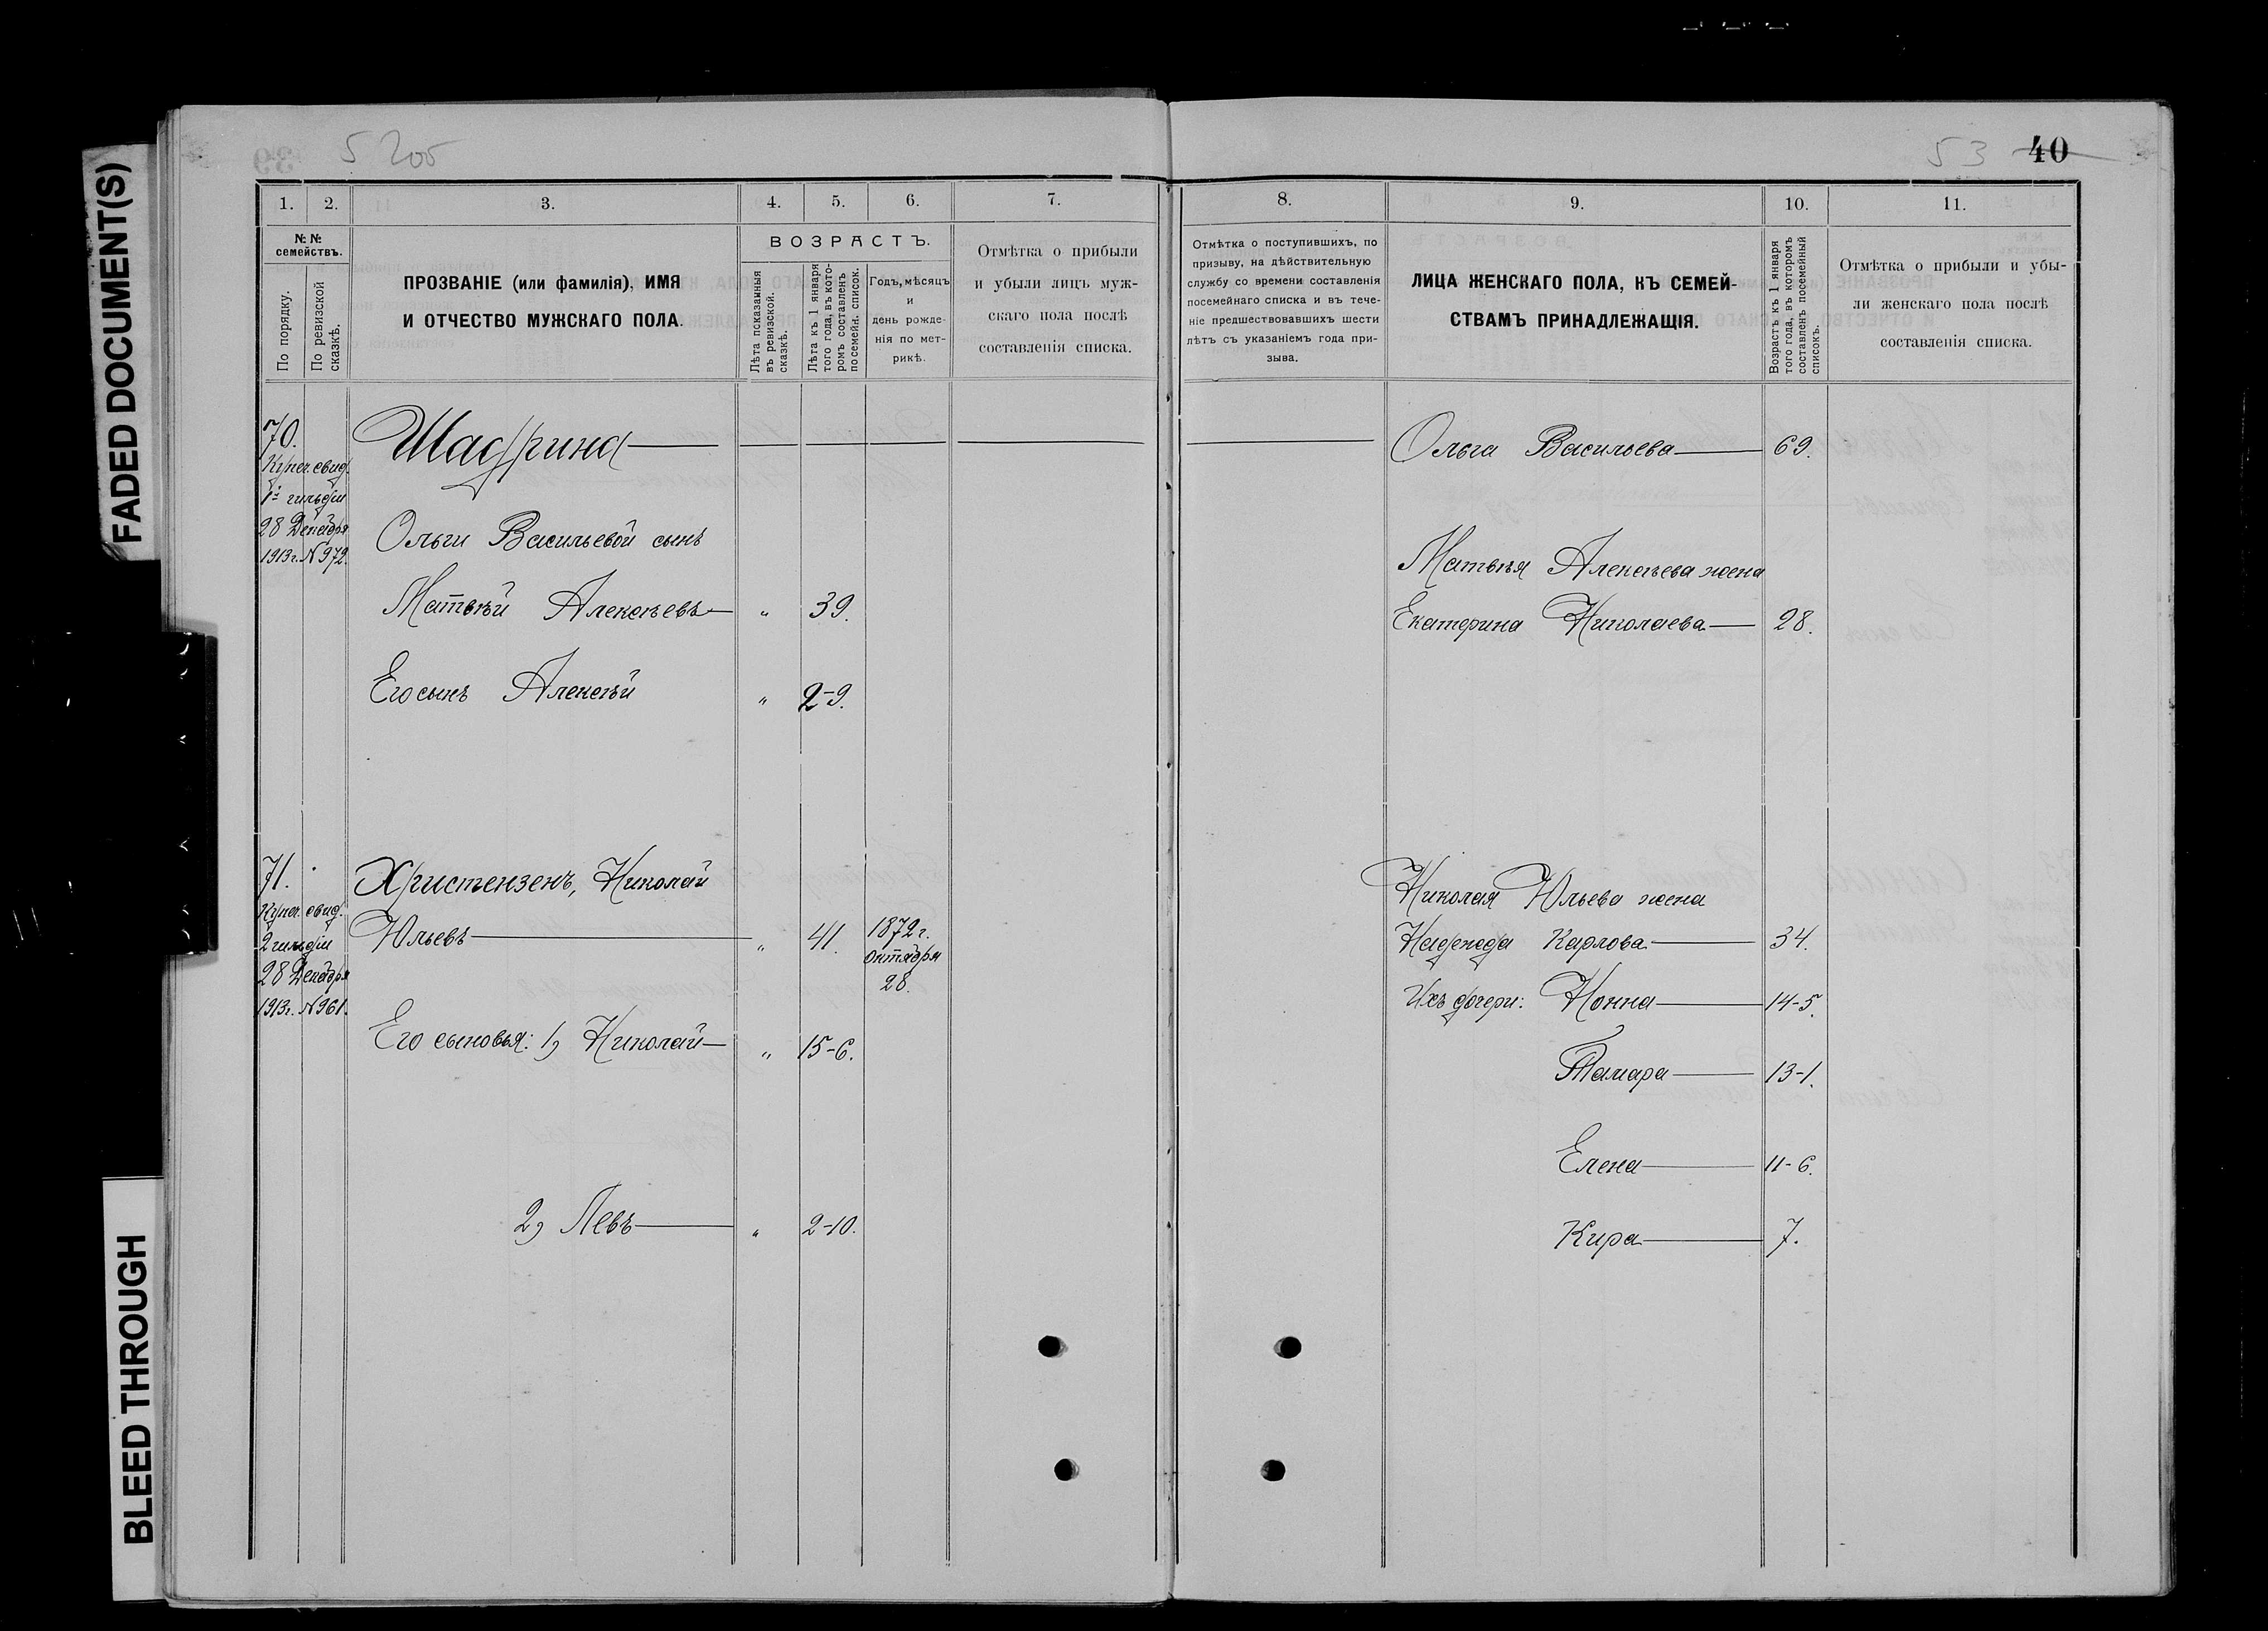 FADED DOCUMENT(S)
BLEED THROUGH
5 205
53 40
1. 2. 3. 4. 5. 6. 7.
№ №
семействъ.
По порядку.
По ревизской
сказкѣ.
ПРОЗВАНІЕ (или фамилія), ИМЯ
И ОТЧЕСТВО МУЖСКАГО ПОЛА.
ВОЗРАСТЪ.
Лѣта показанныя
въ ревизской.
сказкѣ.
Лѣта къ 1 января
того года, въ кото-
ромъ составленъ
посемейн. список.
Годъ, мѣсяцъ
и
день рожде-
нія по мет-
рикѣ.
Отмѣтка о прибыли
и убыли лицъ муж-
скаго пола послѣ
составленія списка.
70.
Купеч. свид.
1й гильдіи
28 Декабря
1913г. № 972.
Шадрина
Ольги Васильевой сынъ
Матвѣй Алексѣевъ „ 39.
Его сынъ Алексѣй „ 2-9.
71.
Купеч. свид.
2 гильдіи
28 Декабря
1913г. № 961.
Христензенъ, Николай
Юльевъ „ 41. 1872 г.
Октября
28.
Его сыновья: 1) Николай „ 15-6.
2) Левъ „ 2-10.
8. 9. 10. 11.
Отмѣтка о поступившихъ, по
призыву, на дѣйствительную
службу со времени составленія
посемейнаго списка и въ тече-
ніе предшествовавшихъ шести
лѣтъ съ указаніемъ года при-
зыва.
ЛИЦА ЖЕНСКАГО ПОЛА, КЪ СЕМЕЙ-
СТВАМЪ ПРИНАДЛЕЖАЩІЯ.
Возрастъ къ 1 января
того года, въ которомъ
составленъ посемейный
списокъ.
Отмѣтка о прибыли и убы-
ли женскаго пола послѣ
составленія списка.
Ольга Васильева 69.
Матвѣя Алексѣева жена
Екатерина Николаева 28.
Николая Юльева жена
Надежда Карлова 34.
Ихъ дочери: Нонна 14-5.
Тамара 13-1.
Елена 11-6.
Кира 7.